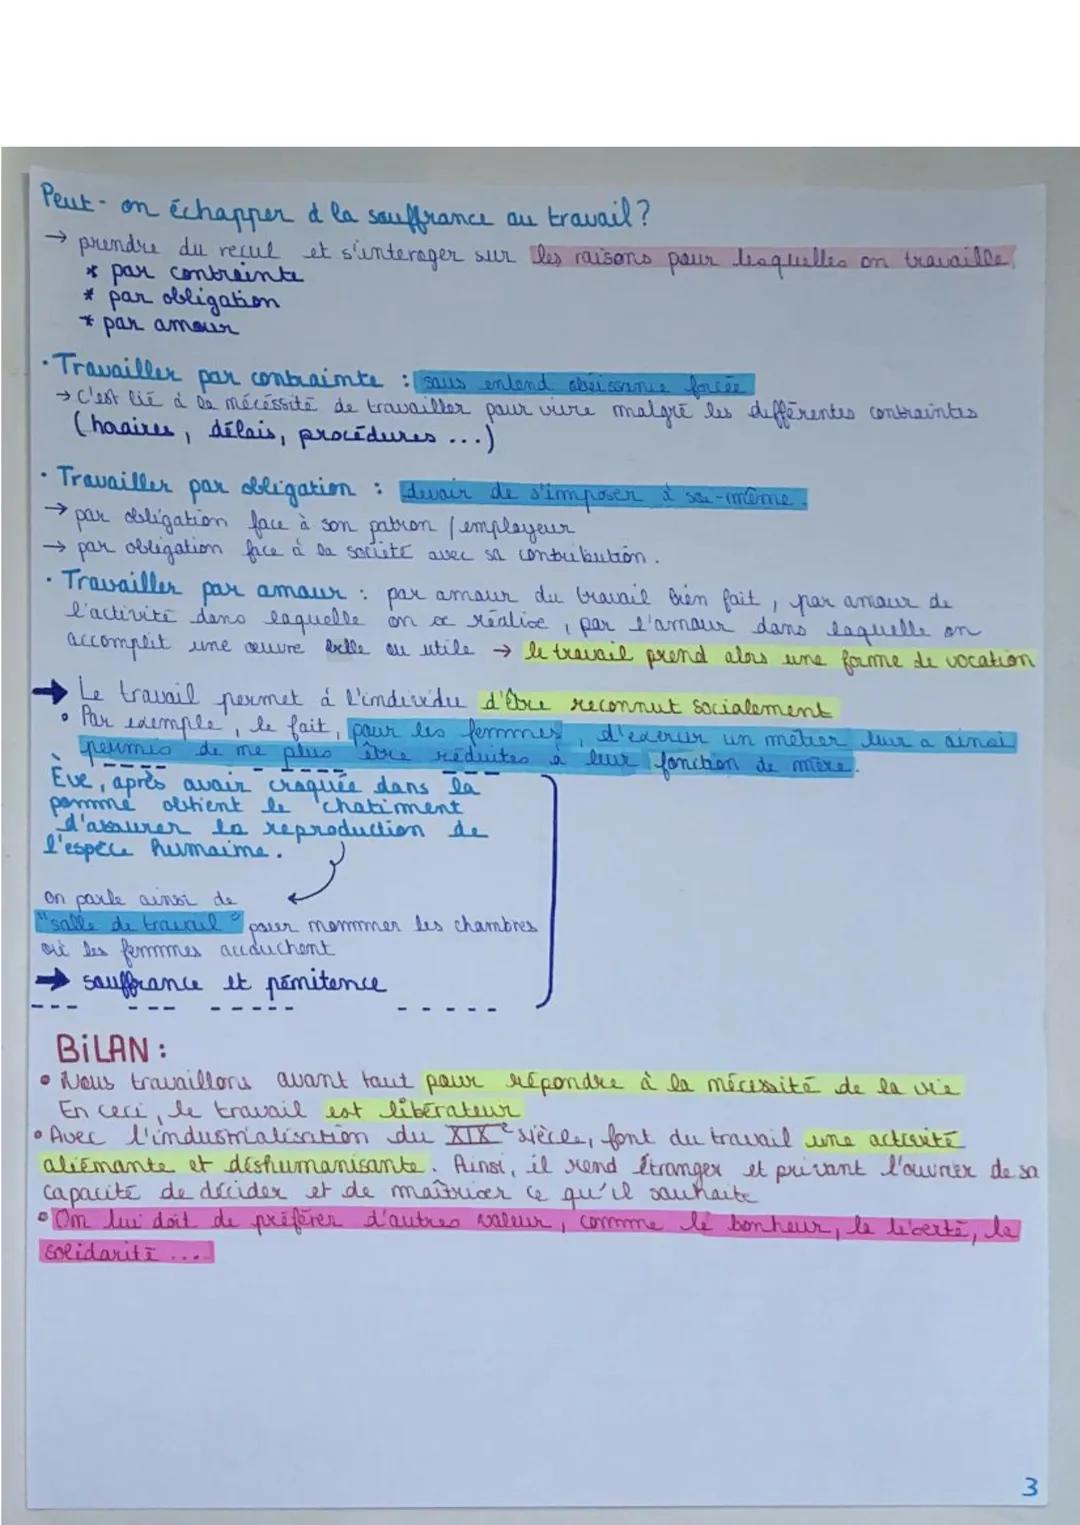 Peut-on échapper à la souffrance au travail ?
→ prendre du recul et s'interoger sur les raisons pour lesquelles on travaille.
* par contrainte
* par obligation
* par amour
• Travailler par contrainte : sous entend obéissance forcée
→ C'est lié à la nécéssité de travailler pour vivre malgré les différentes contraintes
(horaires, délais, procédures ...)
• Travailler par obligation : devoir de s'imposer à soi-même.
→ par obligation face à son patron / employeur
→ par obligation face à la société avec sa contribution.
• Travailler par amour : par amour du travail bien fait, par amour de
l'activité dans laquelle on se réalise, par l'amour dans laquelle on
accomplit une œuvre belle ou utile → le travail prend alors une forme de vocation
→ Le travail permet à l'individu d'être reconnut socialement
• Par exemple, le fait, pour les femmes, d'exercer un métier leur a ainsi
permis de ne plus être réduites à leur fonction de mère.
Ève, après avoir craquée dans la
pomme obtient le chatiment
d'assurer la reproduction de
l'espèce humaine.
on parle ainsi de
"salle de travail" pour nommer les chambres
où les femmes accouchent
→ souffrance et pénitence
BiLAN :
• Nous travaillons avant tout pour répondre à la nécessité de la vie
En ceci, le travail est libérateur
• Avec l'industrialisation du XIXe siècle, font du travail une activité
aliénante et déshumanisante. Ainsi, il rend étranger et privant l'ouvrier de sa
capacité de décider et de maîtriser ce qu'il souhaite
• On lui doit de préférer d'autres valeur, comme le bonheur, la liberté, la
solidarité ....
3